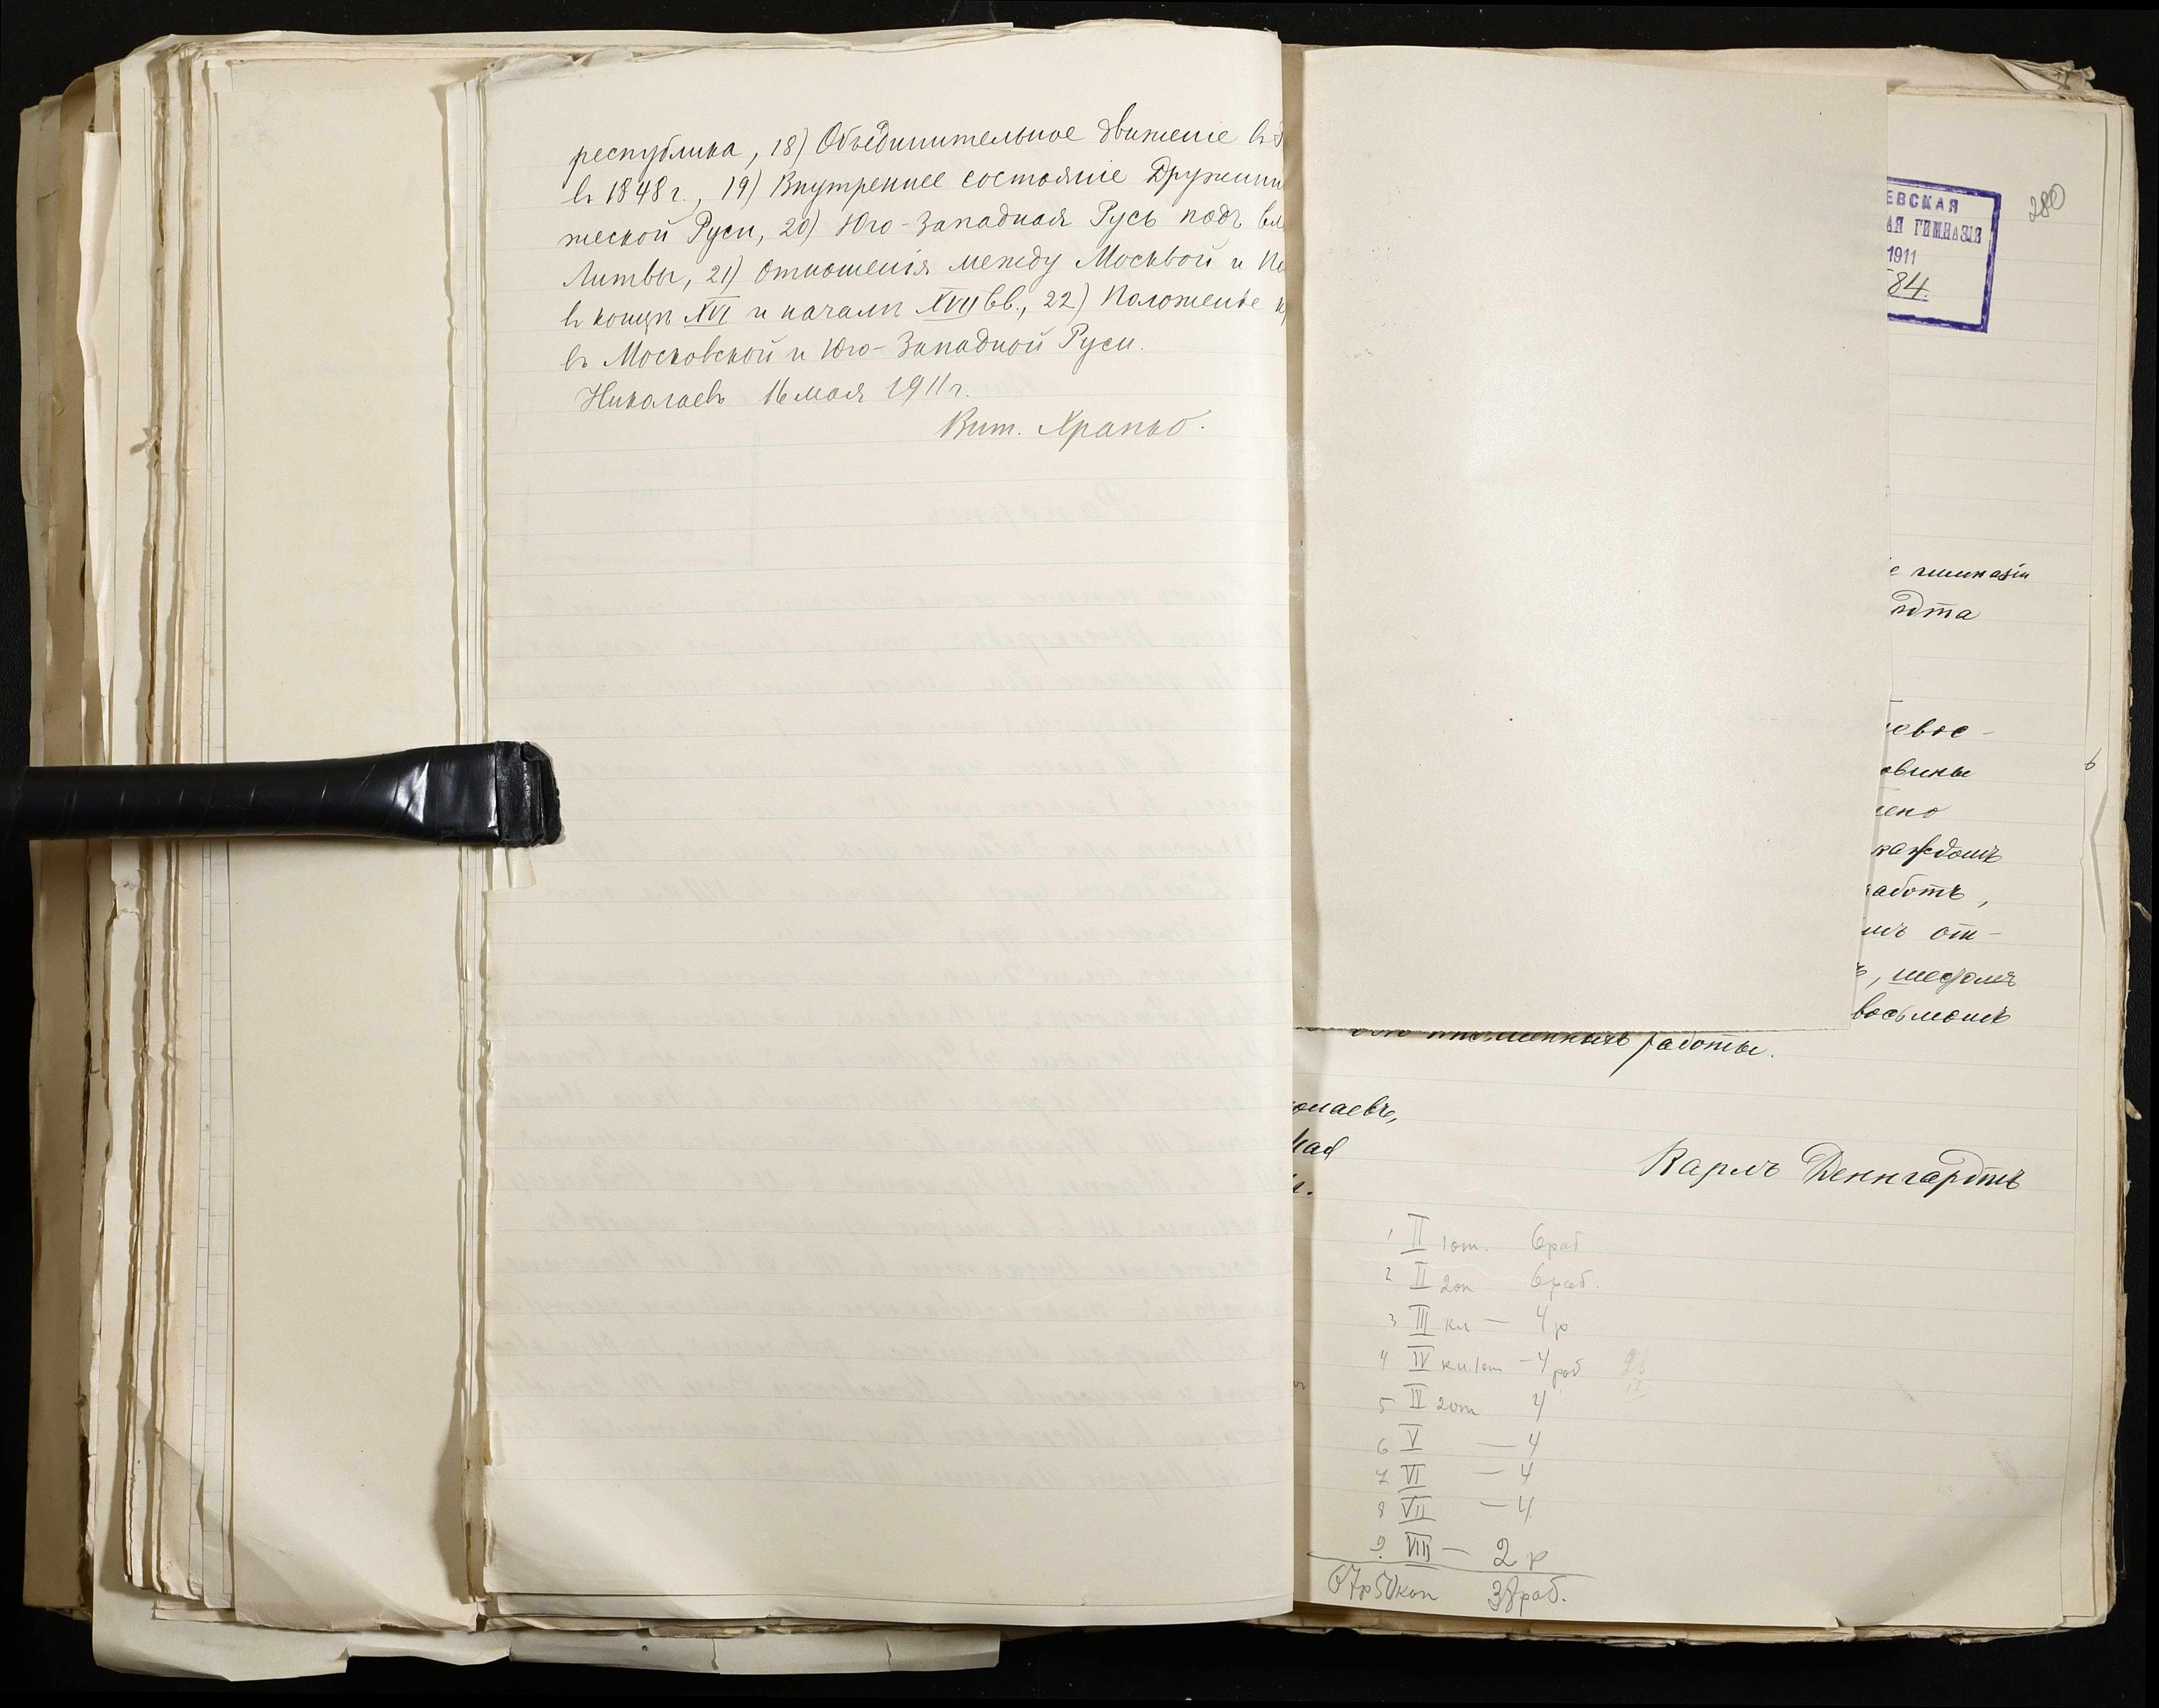 республика, 18) Объединительное движеніе въ
въ 1848 г., 19) Внутреннее состояніе Дружинн
жеской Руси, 20) Юго-Западная Русь подъ вл
Литвы, 21) Отношенія между Москвой и По
въ концѣ XVI и началѣ XVII вв., 22) Положеніе к
въ Московской и Юго-Западной Руси.
Николаевъ 16 мая 1911 г.
Вит. Храпко.
280
ЕВСКАЯ
АЯ ГИМНАЗІЯ
1911
84.
е гимназіи
рдта
евос-
овины
лено
каждомъ
работъ,
мъ от-
ъ, шестомъ
восьмомъ
письменныхъ работы.
олаевъ,
Мая
г.
Карлъ Деннгардтъ
1 II 1от. 6 раб
2 II 2от 6 раб.
3 III кл — 4 р
4 IV кл. 1от — 4 раб
5 IV 2от 4
6 V — 4
7 VI — 4
8 VII — 4
9. VIII — 2 р
67р 50коп 38 раб.